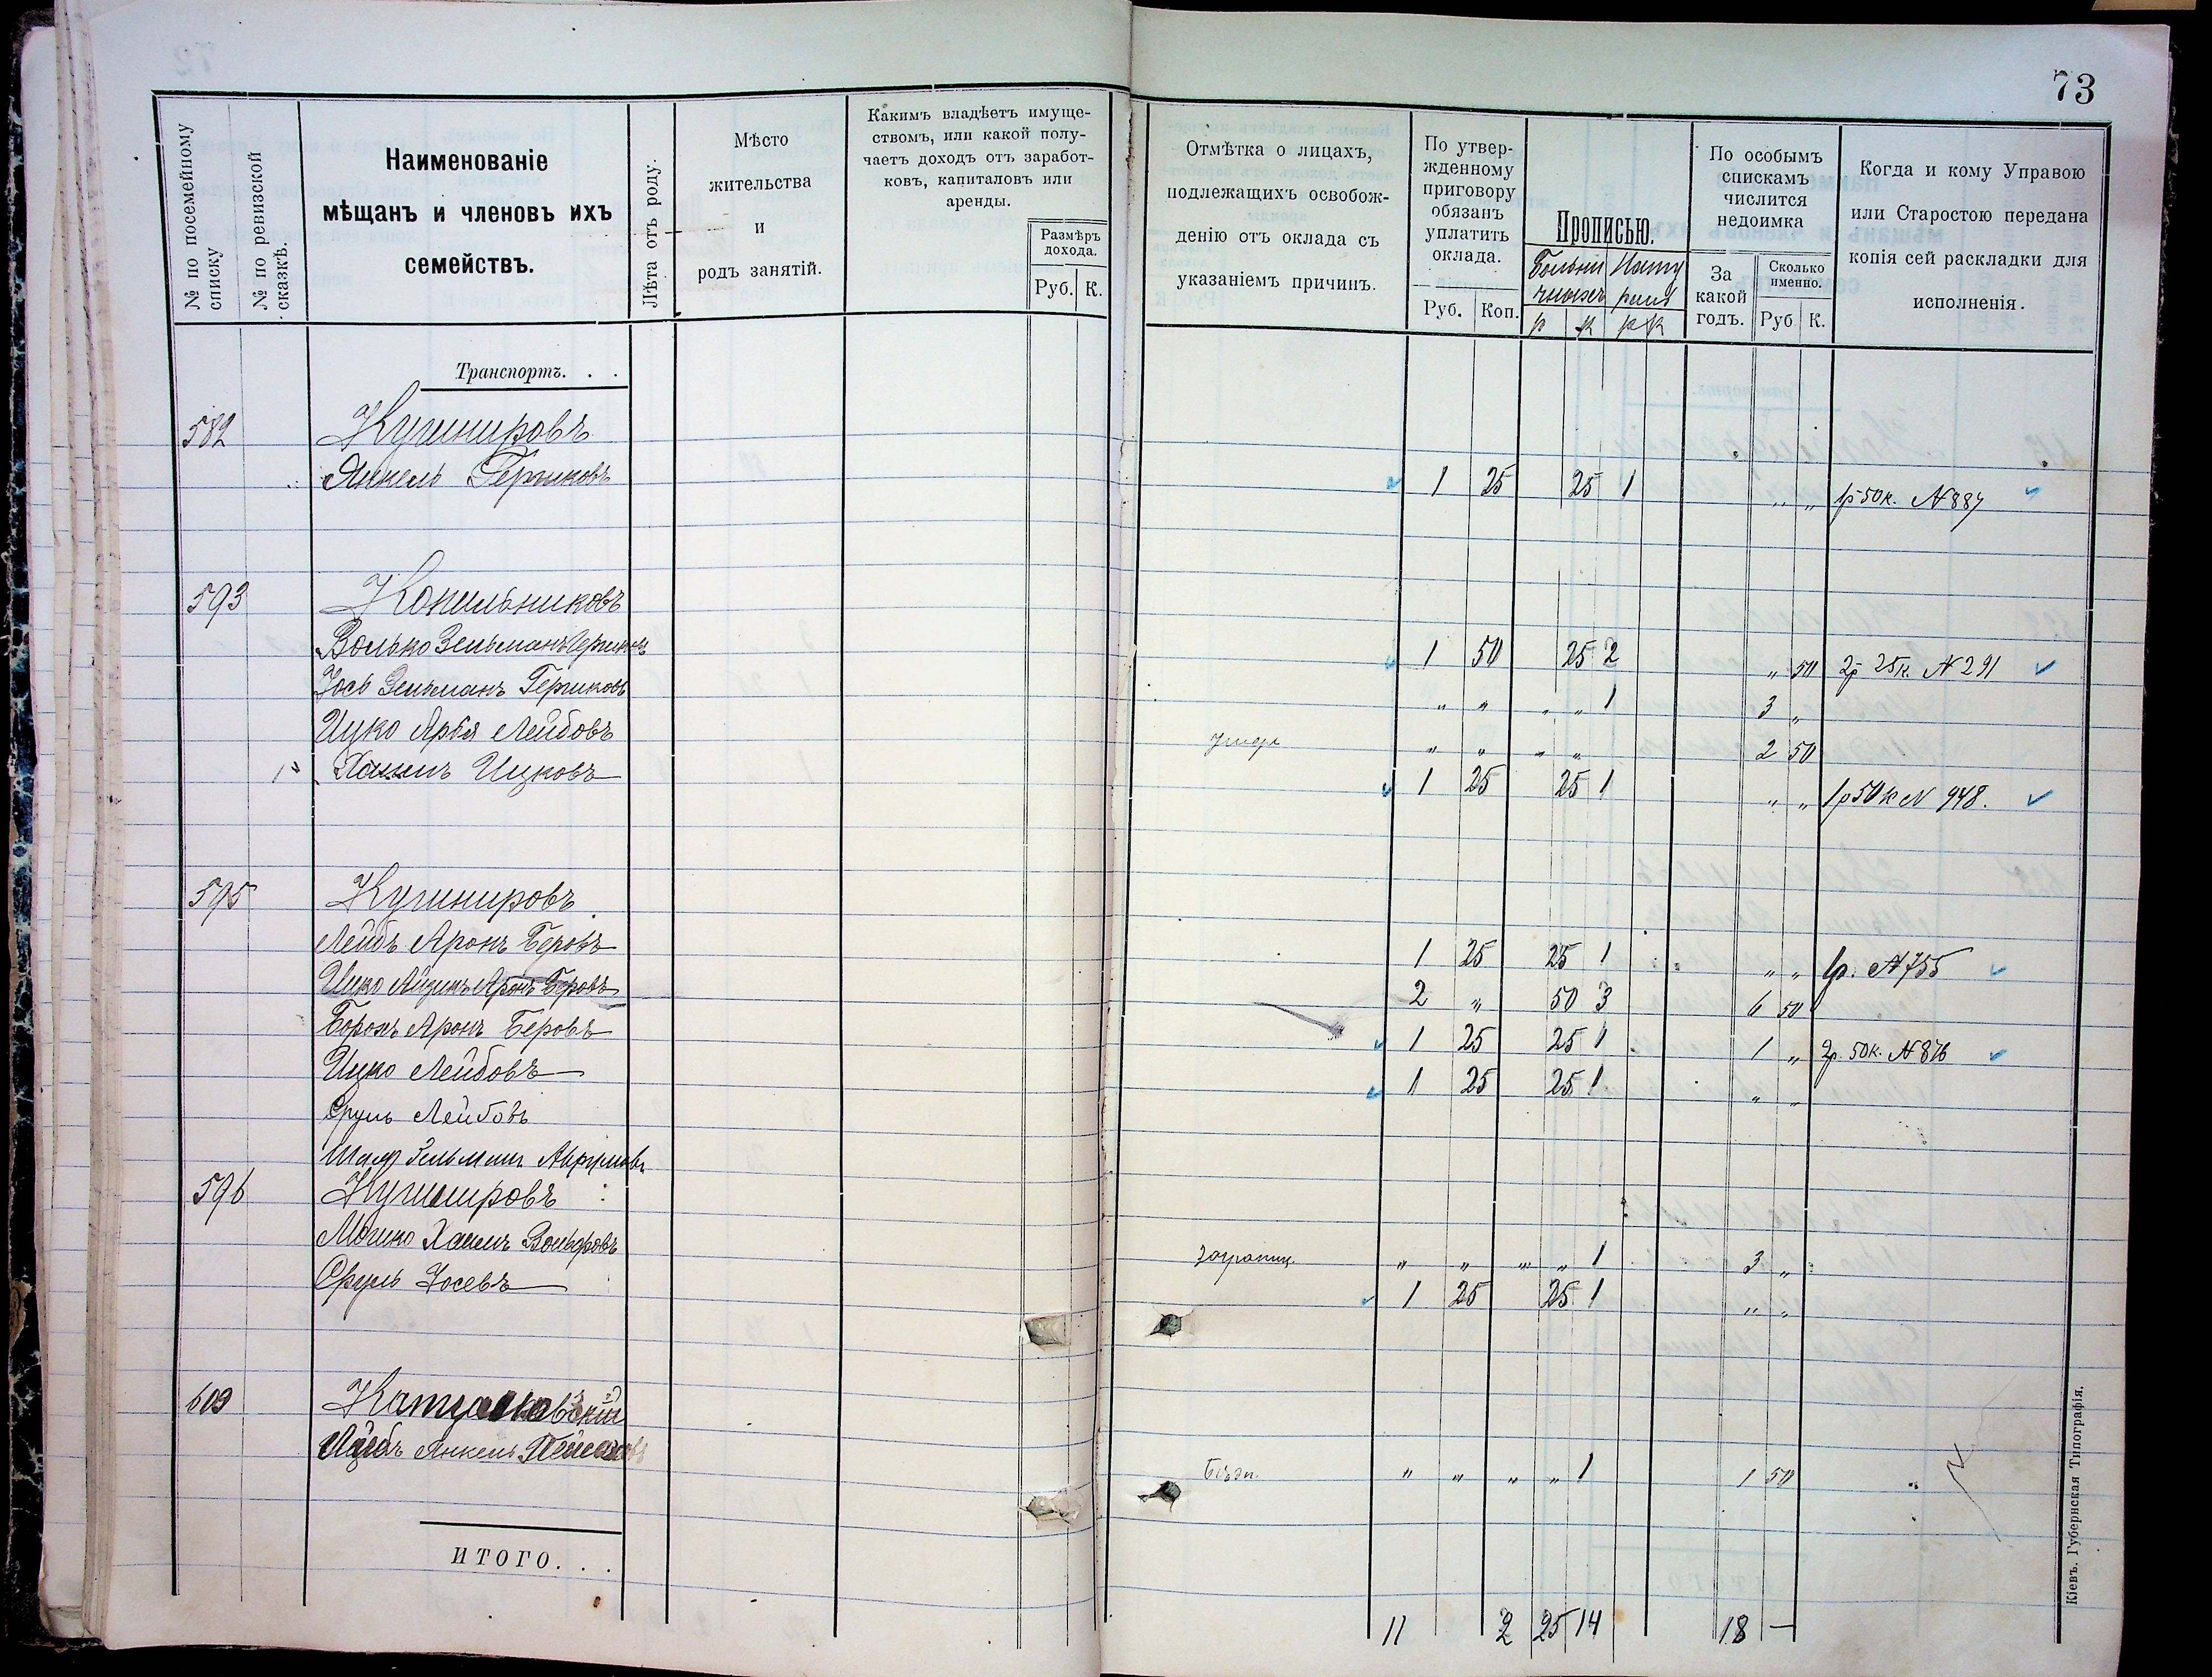 73
№ по посемейному списку
№ по ревизской сказкѣ.
Наименованіе
мѣщанъ и членовъ ихъ
семействъ.
Лѣта отъ роду.
Мѣсто
жительства
и
родъ занятій.
Какимъ владѣетъ имуще-
ствомъ, или какой полу-
чаетъ доходъ отъ заработ-
ковъ, капиталовъ или
аренды.
Размѣръ
дохода.
Руб. К.
Отмѣтка о лицахъ,
подлежащихъ освобож-
денію отъ оклада съ
указаніемъ причинъ.
По утвер-
жденному
приговору
обязанъ
уплатить
оклада.
Руб. Коп.
Прописью.
р к р к
По особымъ
спискамъ
числится
недоимка
За
какой
годъ.
Сколько
именно.
Руб К.
Когда и кому Управою
или Старостою передана
копія сей раскладки для
исполненія.
Транспортъ. . .
582 Кушнировъ
Янкель Гершковъ 1 25 25 1 " " 1р 50к. N 887
593 Копельниковъ
Волько Зельманъ Гершковъ 1 50 25 2 " 50 2р 25к. N 291
Іось Зельманъ Гершковъ " " " " 1 3 "
Ицко Арья Лейбовъ " " " " 2 50
Хаимъ Ицковъ 1 25 25 1 " " 1р 50к N 948.
595 Кушнировъ
Лейбъ Аронъ Беровъ 1 25 25 1 " " 1р. N 755
Ицко Айзикъ Аронъ Беровъ 2 " 50 3 6 50
Борохъ Аронъ Беровъ 1 25 25 1 1 " 2р. 50к. N 876
Ицко Лейбовъ 1 25 25 1 " "
Сруль Лейбовъ
596 Кушнировъ
Мошко Хаимъ Вольфовъ заграниц. " " " " 1 3 "
Сруль Іосевъ 1 25 25 1 " "
609
Янкель " " " " 1 1 50
ИТОГО. . .
11 2 25 14 18 —
Кіевъ. Губернская Типографія.